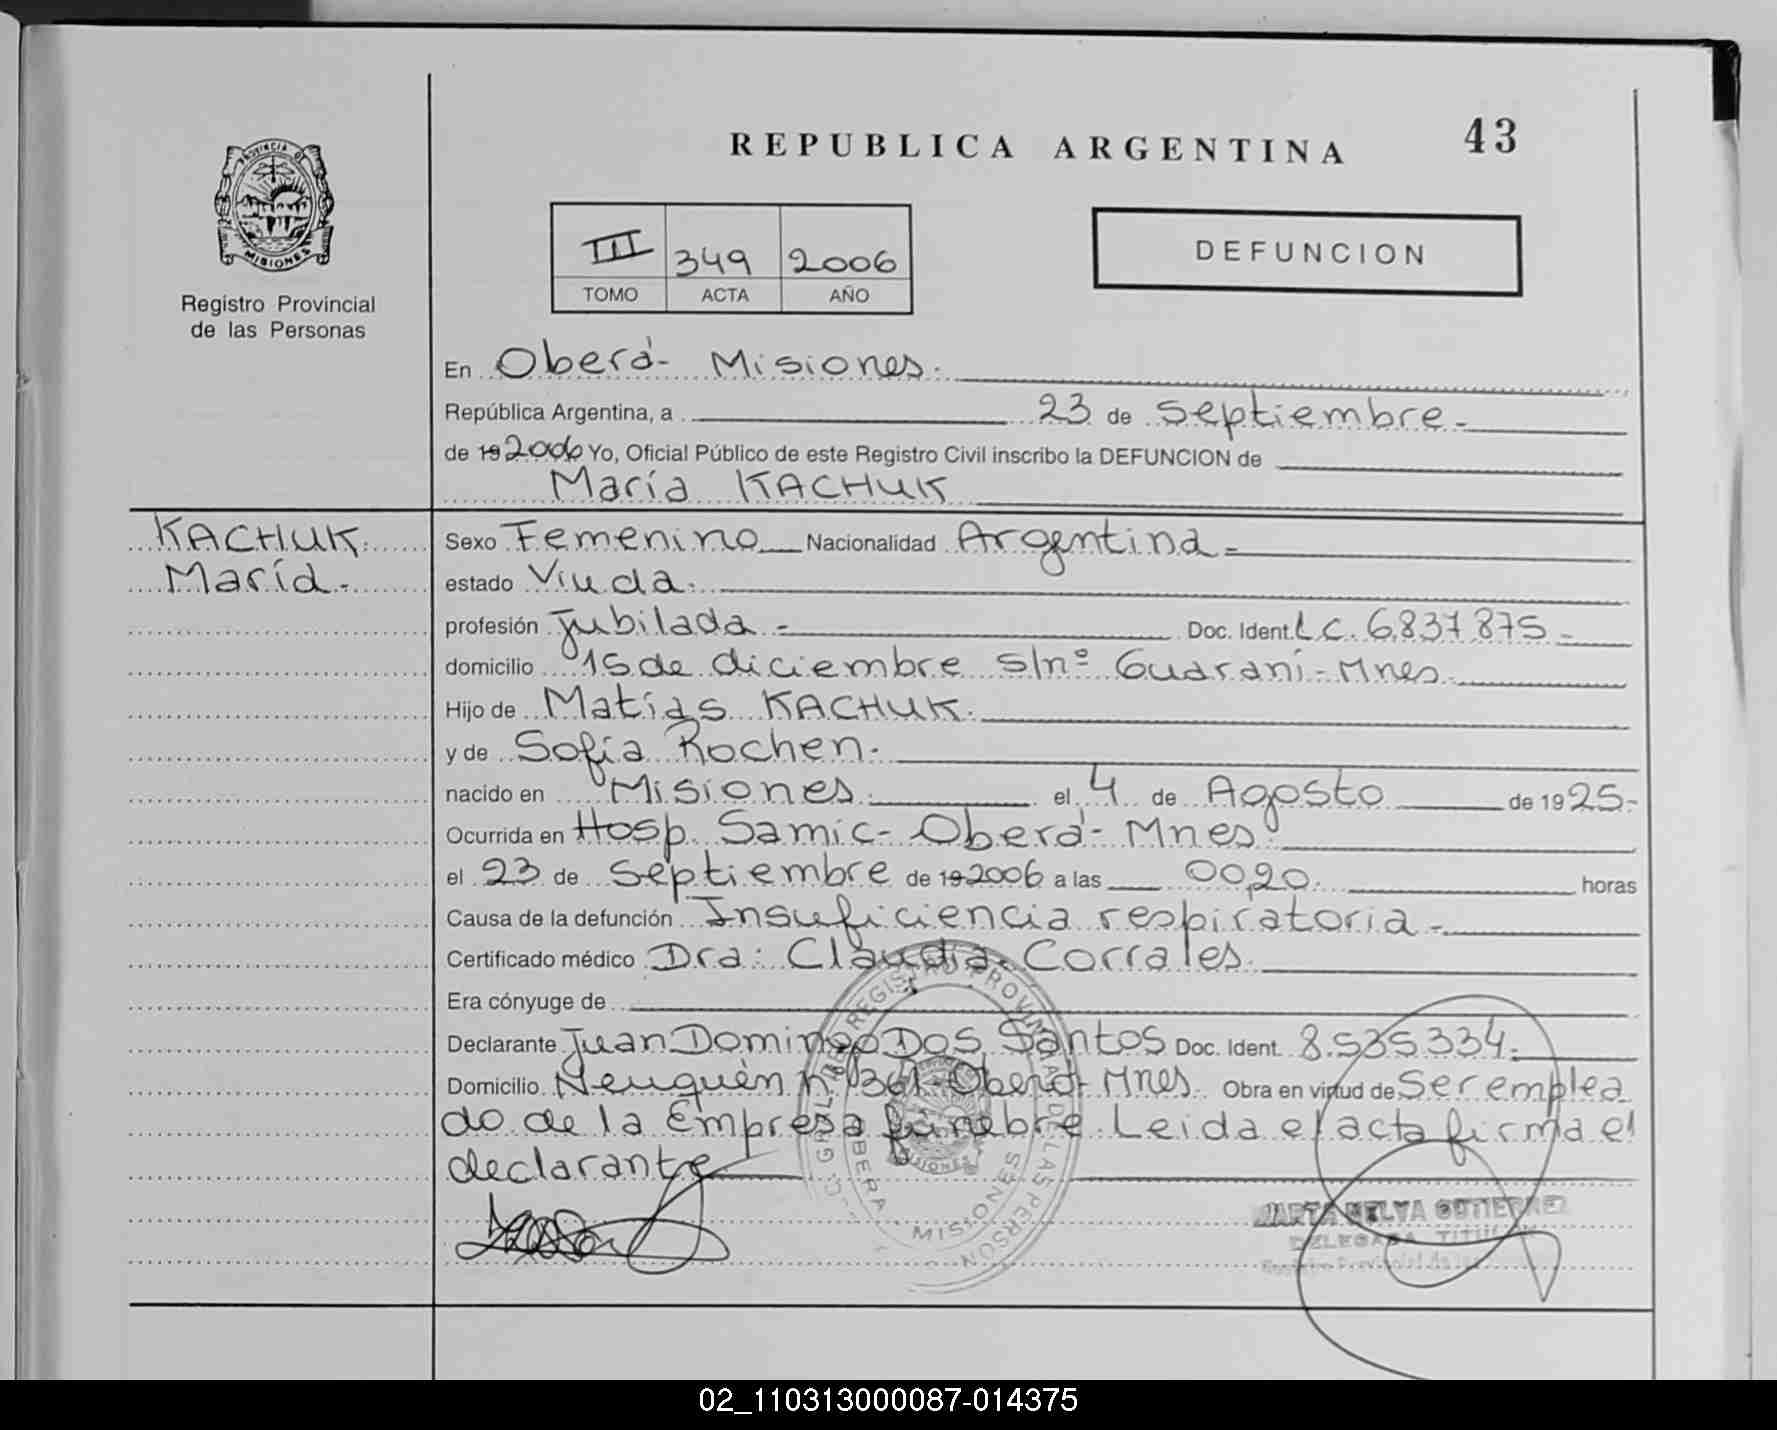 REPUBLICA ARGENTINA
43
PROVINCIA DE
MISIONES
Registro Provincial
de las Personas
III 349 2006
TOMO ACTA AÑO
DEFUNCION
En Oberá- Misiones.
República Argentina, a 23 de septiembre-
de 19 2006 Yo, Oficial Público de este Registro Civil inscribo la DEFUNCION de
María KACHUK
KACHUK.
María-
Sexo Femenino Nacionalidad Argentina-
estado Viuda.
profesión jubilada- Doc. Ident. LC. 6.837.875-
domicilio 15 de diciembre s/nº Guaraní-Mnes.
Hijo de Matías KACHUK.
y de Sofía Rochen.
nacido en Misiones. el 4 de Agosto de 1925-
Ocurrida en Hosp. Samic- Oberá- Mnes.
el 23 de septiembre de 19 2006 a las 00,20. horas
Causa de la defunción Insuficiencia respiratoria-
Certificado médico Dra: Claudia Corrales.
Era cónyuge de
Declarante Juan Domingo Dos Santos Doc. Ident. 8.535.334.
Domicilio Neuquén nº 361- Oberá- Mnes. Obra en virtud de Ser emplea
do de la Empresa fúnebre. Leida el acta firma el
declarante
REGISTRO PROVINCIAL DE LAS PERSON
OBERA MISIONES
MARTA NELVA GUTIERREZ
DELEGADA TITULAR
Registro Provincial de las
02_110313000087-014375